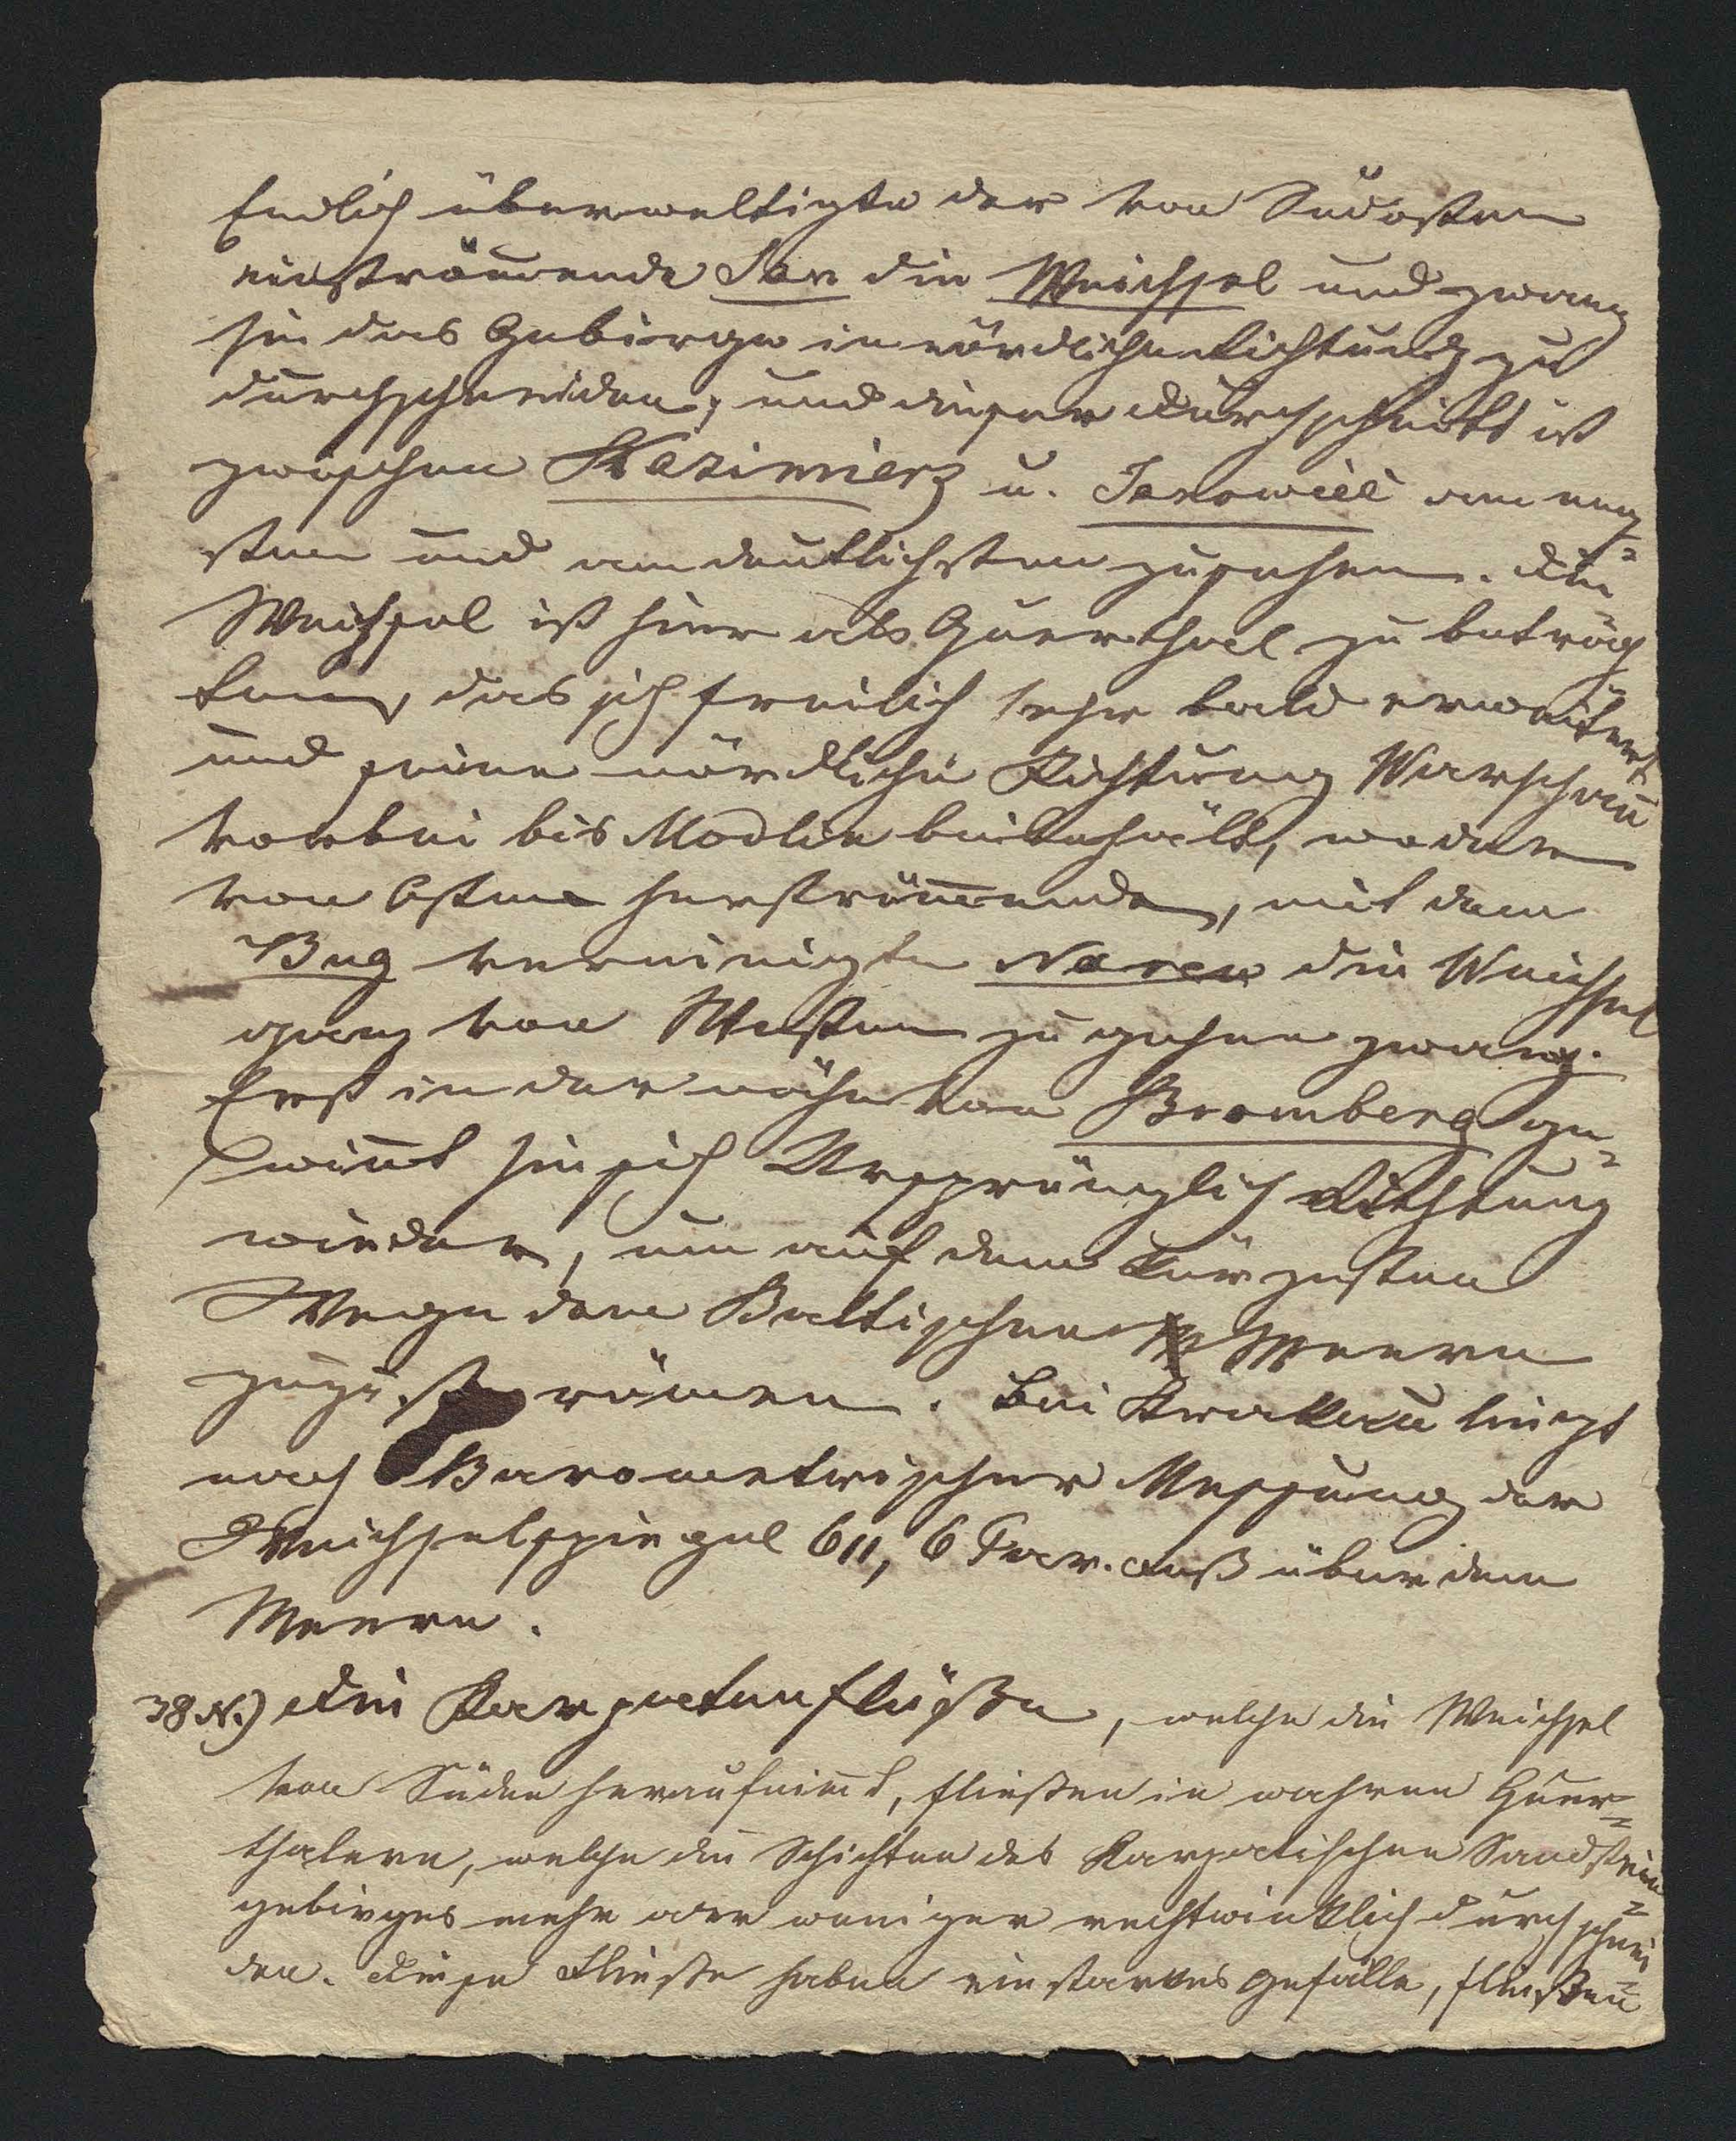 Endlich überweltigte der von Südosten
einströmende San die Weichsel und zwang
sie das Gebirge in nördlicher Richtung zu
durchschneiden; und dieser Durchschnitt ist
zwischen Kazimierz u. Janowiec am eng=
sten und am deutlichsten zu sehen. Die
Weichsel ist hier als Querthal zu betrach
ten, das sich freilich sehr bald erweitert
und seine nördliche Richtung Warschau
vorbei bis Modlin beibehält, wo der
von Osten herströmende, mit dem
Bug vereinigte Narew die Weichsel
ganz von Westen zu gehen zwang.
Erst in der nähe von Bromberg ge=
winnt sie sich Ursprünglich Richtung
wieder, um auf dem kürzesten
Wege dem Baltischen Meere
zuzuströmen. Bei Krakau liegt
nach Barometrischer Messung der
Weichselspiegel 611, 6 Par. über dem
Meere.
38 N.) Die Karpatenflüße, welche die Weichsel
von Süden heraufnimt, fließen in wahren Quer=
thalern, welche die Schichten des Karpatischen Sandstein=
gebirges mehr oder weniger rechtwinklich durchschnei=
den. Diese Flüsse haben ein starkes Gefälle, fließen